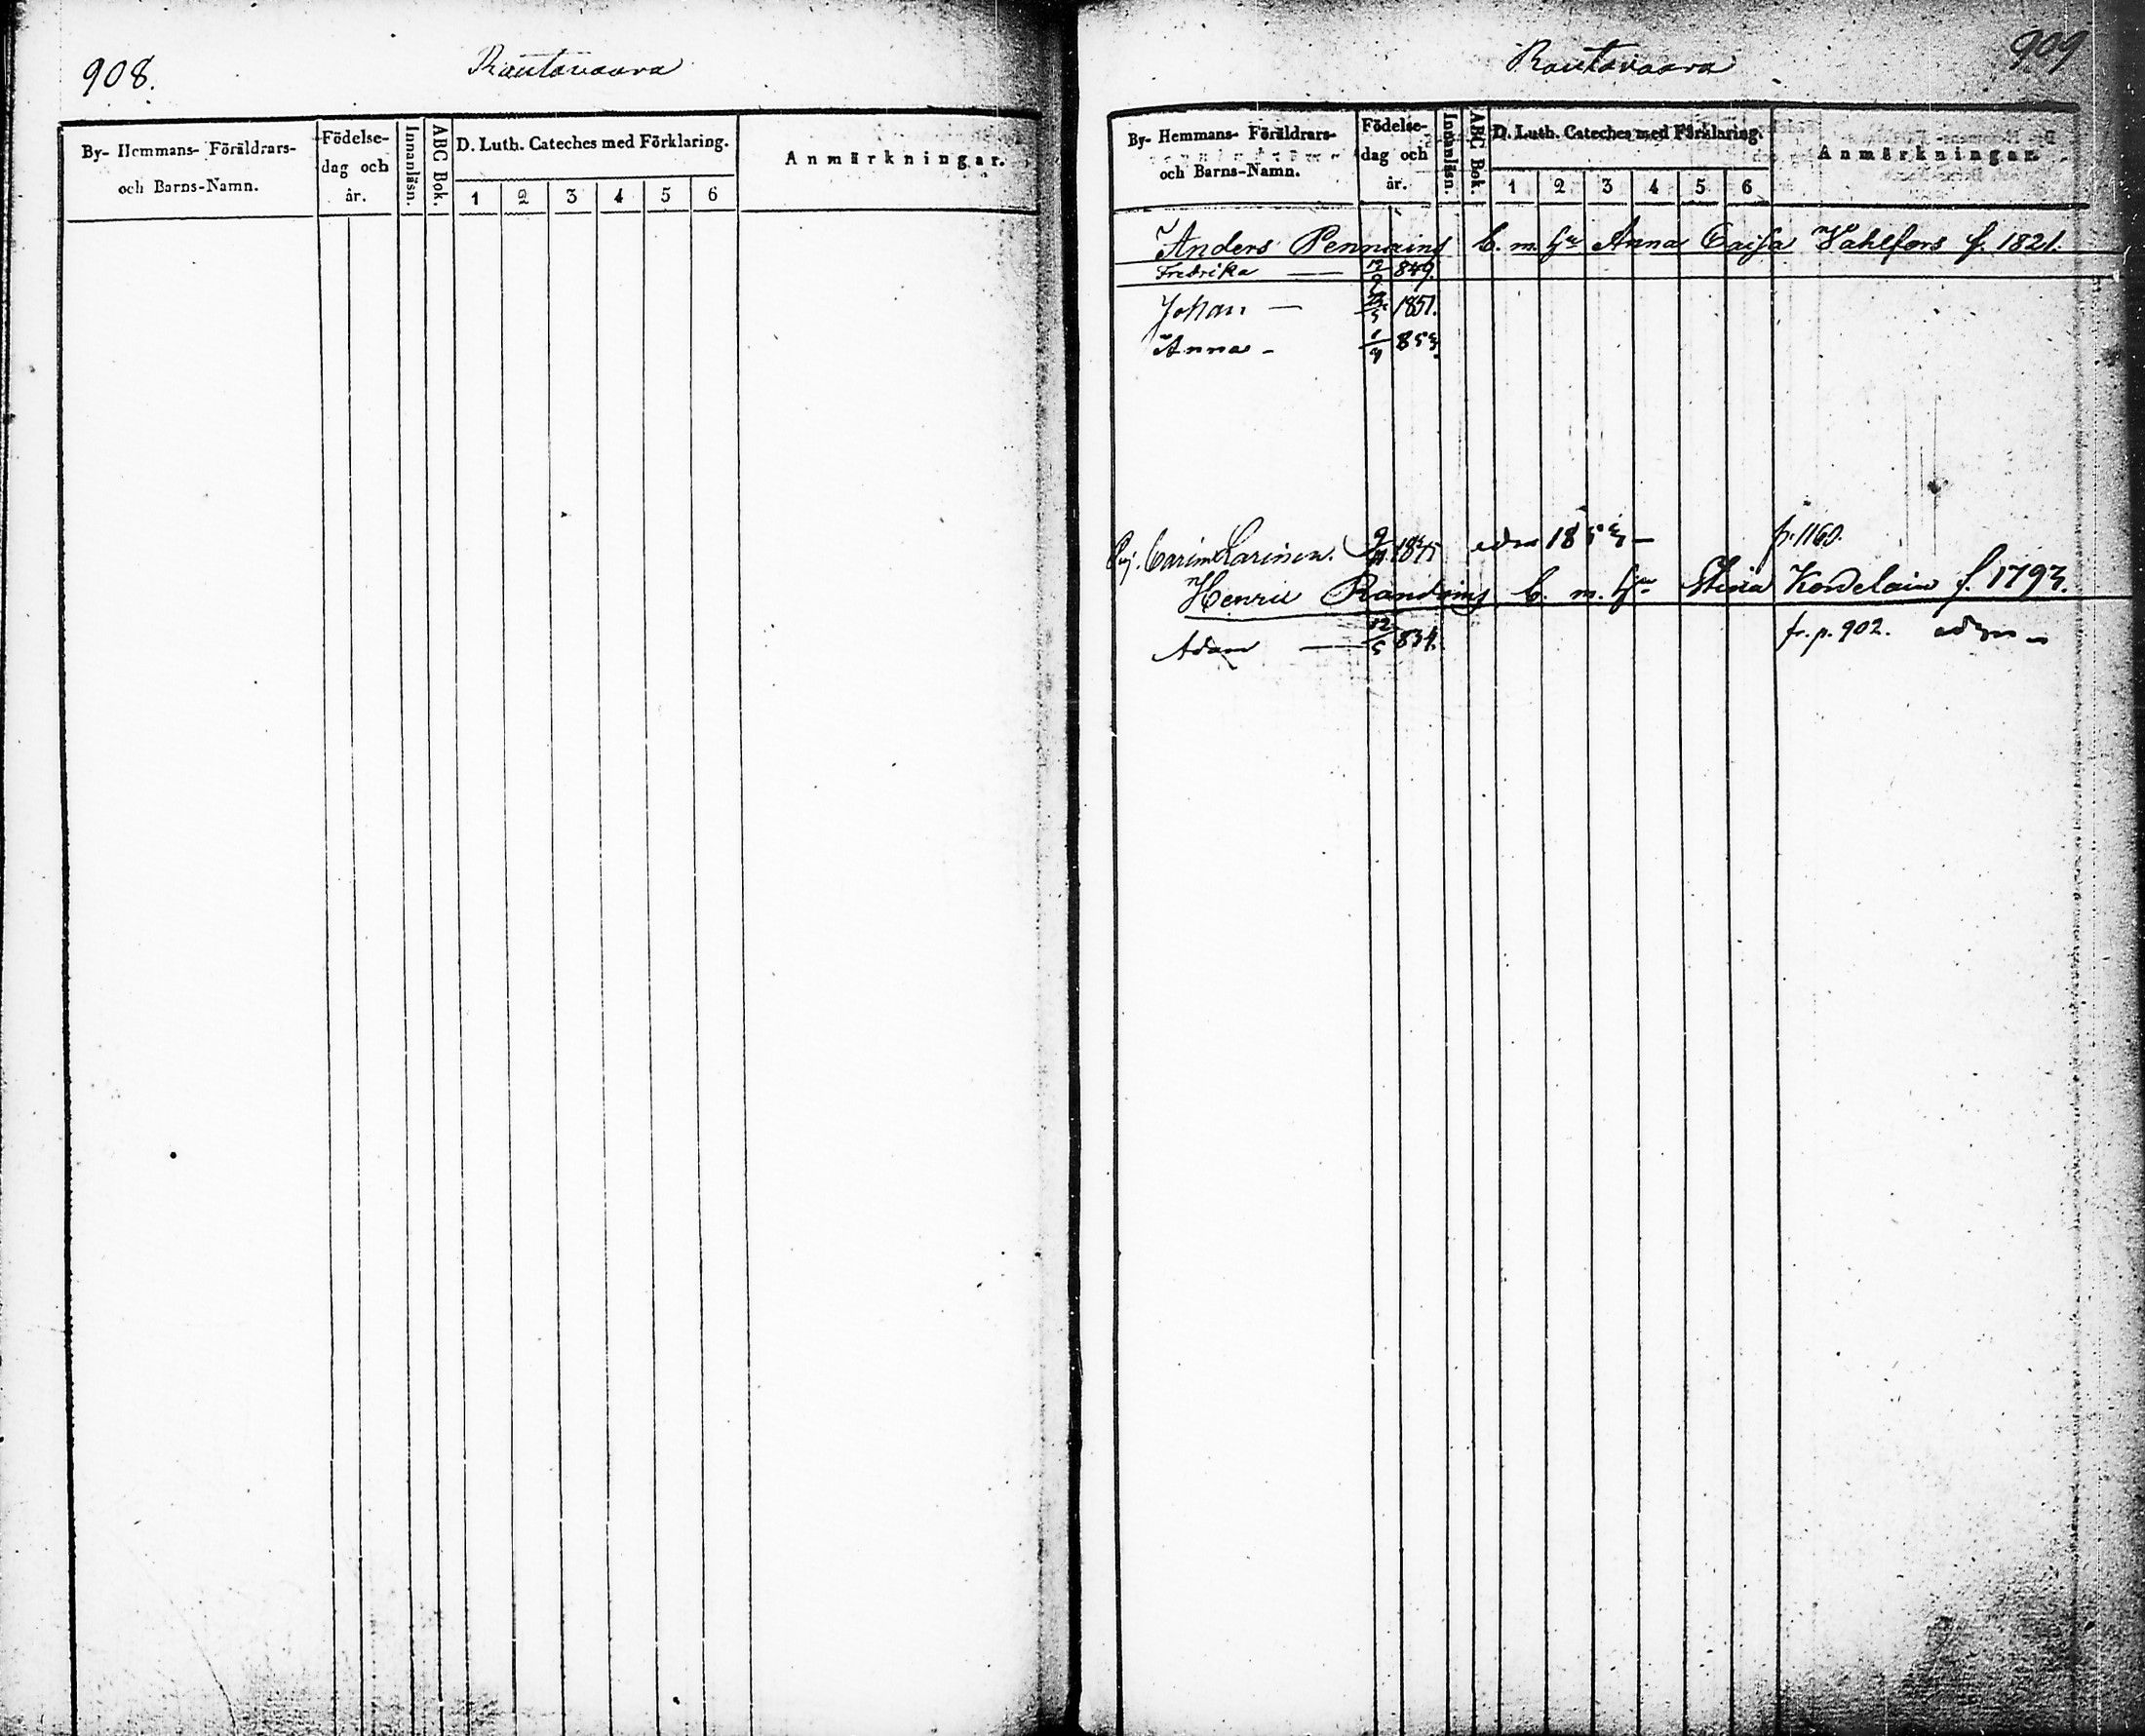 908.
Rautavaara
By- Hemmans- Föräldrars-
och Barns-Namn.
Födelse-
dag och
år.
Innanläsn.
ABC Bok.
D. Luth. Cateches med Förklaring.
1 2 3 4 5 6
Anmärkningar.
909
Rautavaara
By- Hemmans- Föräldrars-
och Barns-Namn.
Födelse-
dag och
år.
Innanläsn.
ABC Bok.
D. Luth. Cateches med Förklaring.
1 2 3 4 5 6
Anmärkningar.
Anders Pennaing b. m. Anna Caisa Vahlfors f. 1821.
Fredrika — 849.
Johan — 1851.
Anna - 853.
Carin Larinen. 1853 — p. 1160.
Henric b. m. Stina f. 1793.
Adam — 12/5 834. fr. p. 902.